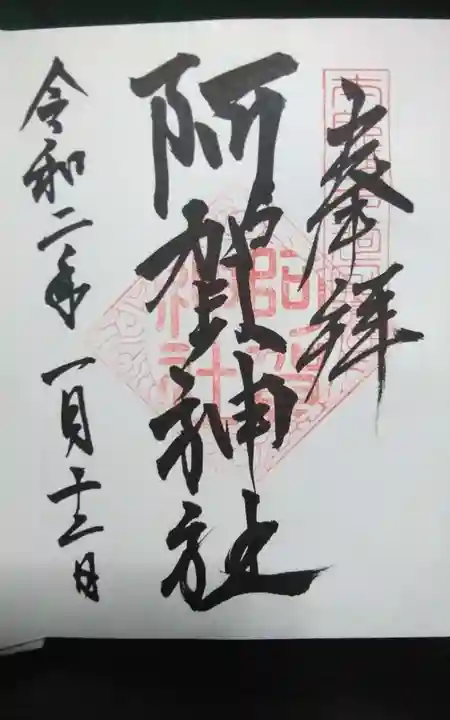 奉拝
阿賀神社
令和二年一月十三日
阿賀神社